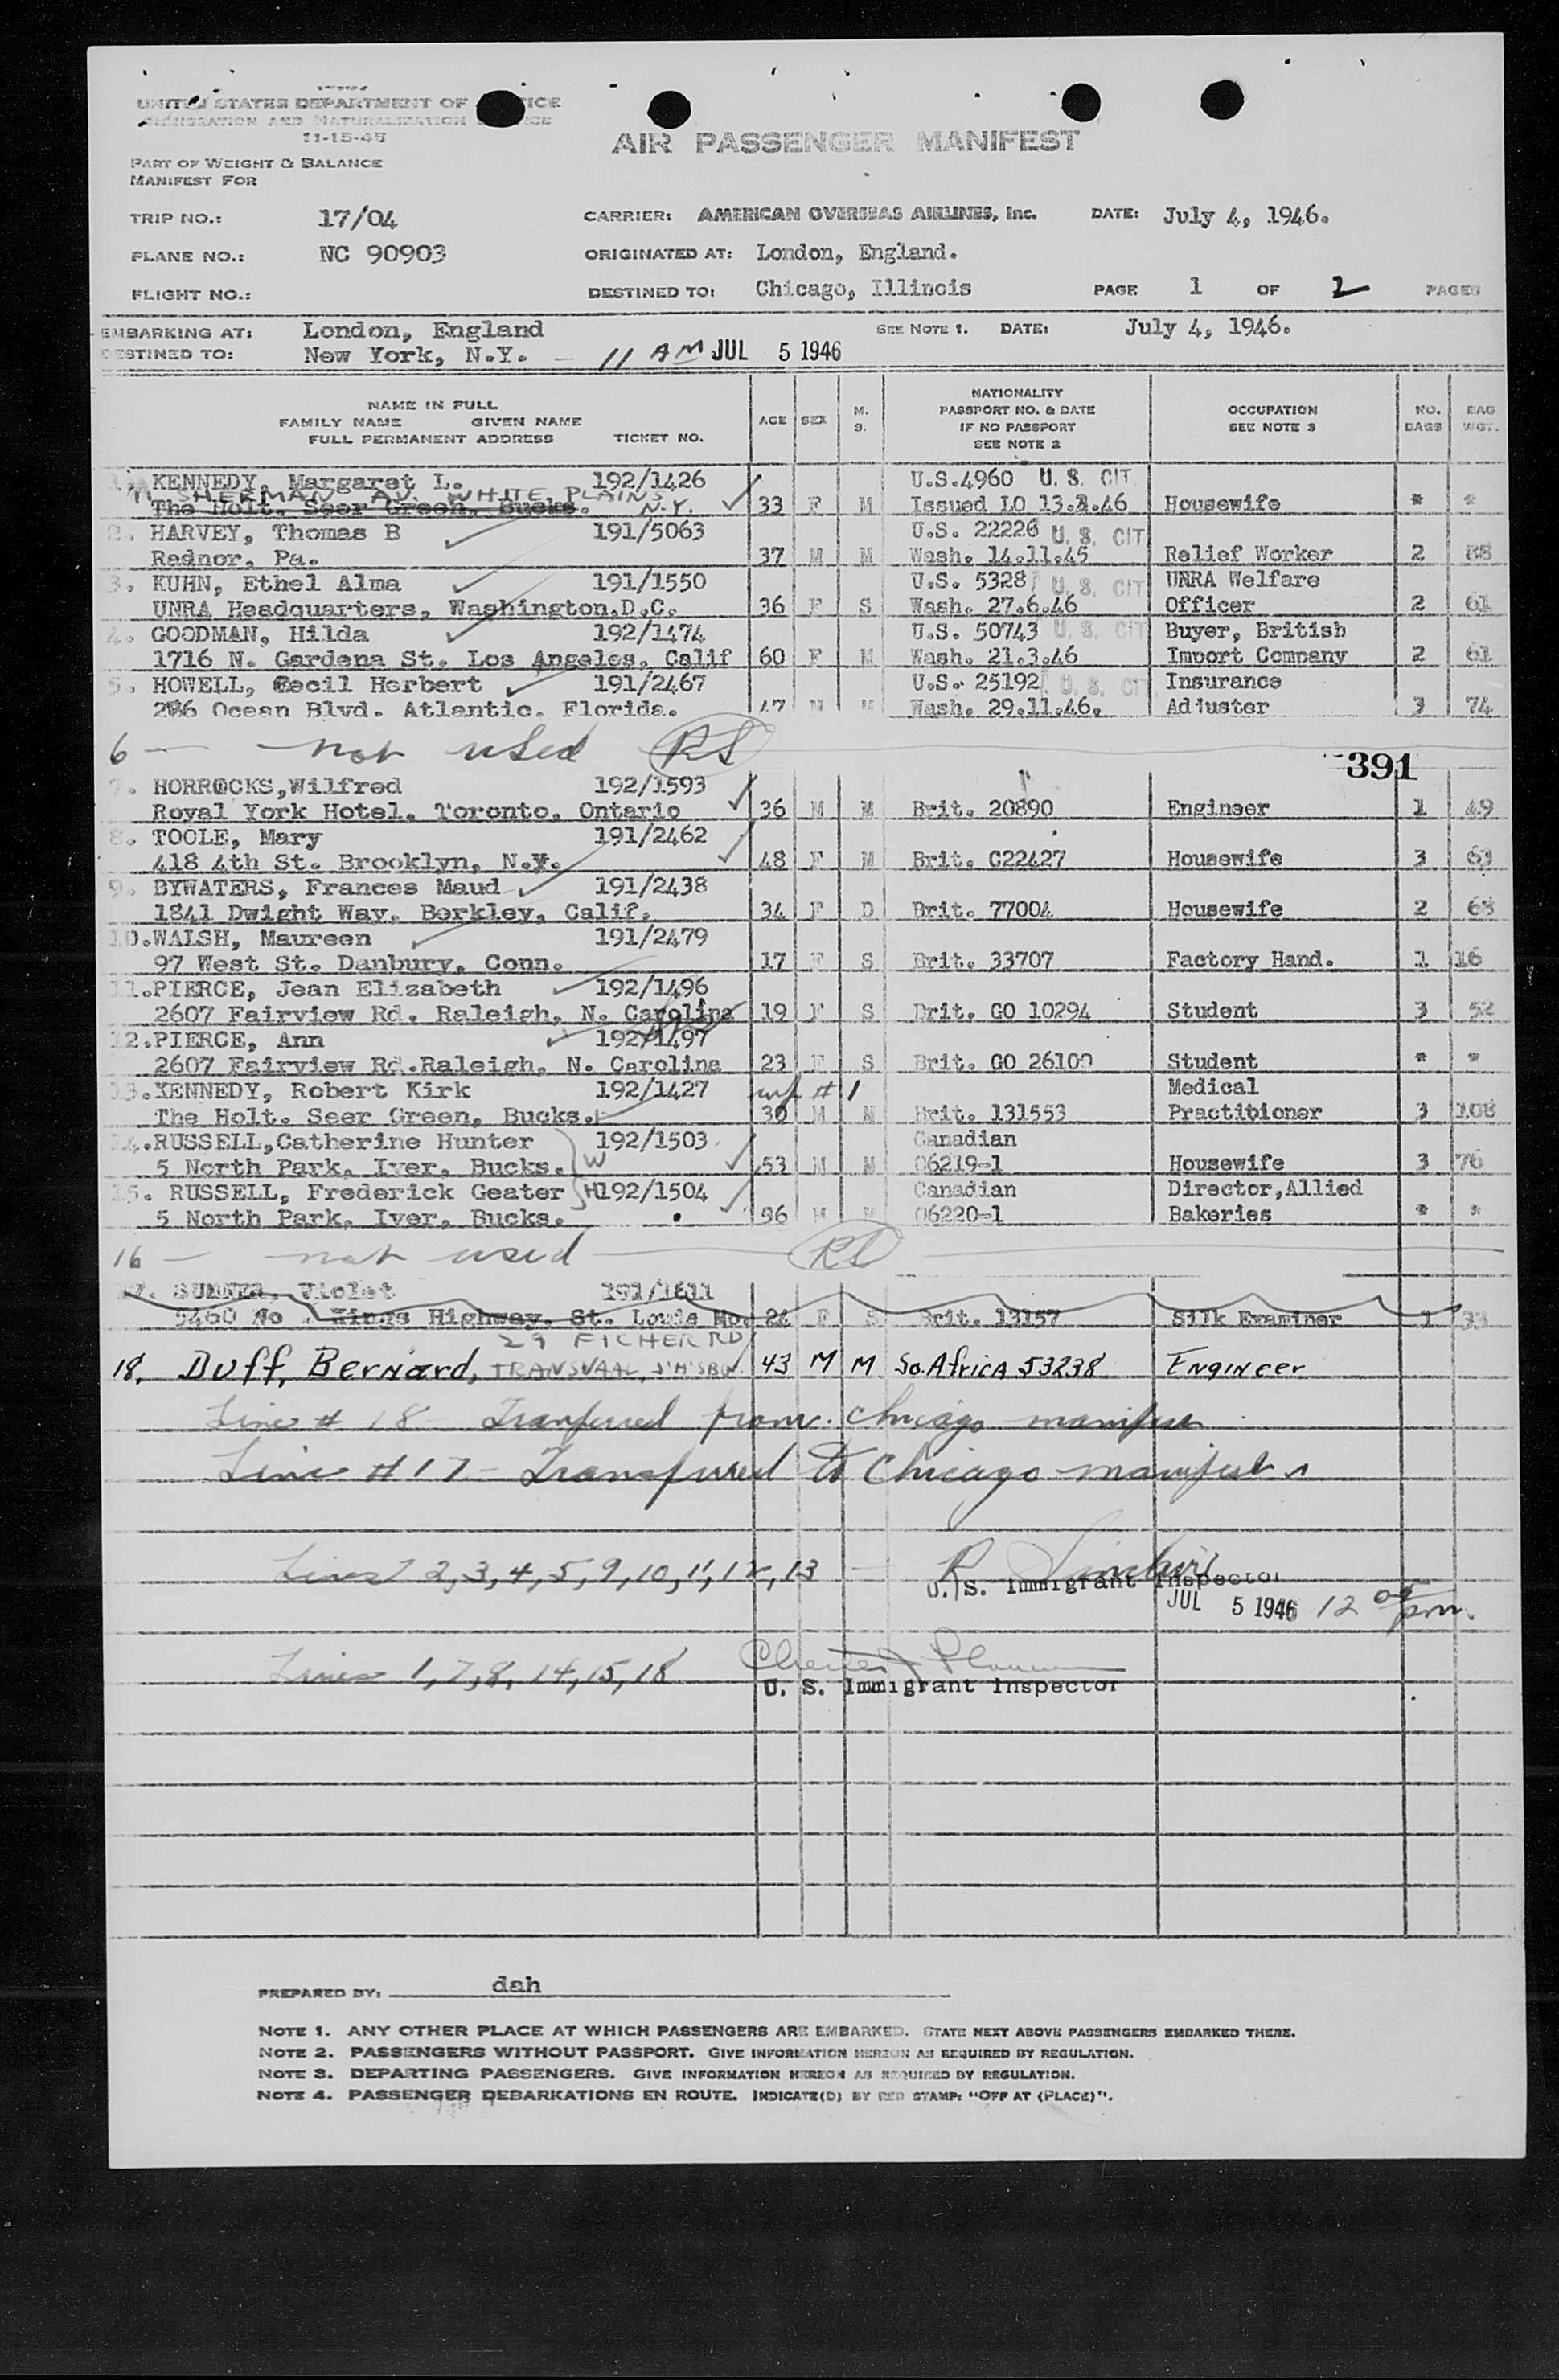 UNITED STATES DEPARTMENT OF JUSTICE
IMMIGRATION AND NATURALIZATION SERVICE
11-15-45
AIR PASSENGER MANIFEST
PART OF WEIGHT & BALANCE
MANIFEST FOR
TRIP NO.: 17/04 CARRIER: AMERICAN OVERSEAS AIRLINES, Inc. DATE: July 4, 1946.
PLANE NO.: NC 90903 ORIGINATED AT: London, England.
FLIGHT NO.: DESTINED TO: Chicago, Illinois PAGE 1 OF 2 PAGES
EMBARKING AT: London, England SEE NOTE 1. DATE: July 4, 1946.
DESTINED TO: New York, N.Y. — 11 AM JUL 5 1946
NAME IN FULL
FAMILY NAME GIVEN NAME
FULL PERMANENT ADDRESS TICKET NO. AGE SEX M. S. NATIONALITY PASSPORT NO. & DATE IF NO PASSPORT SEE NOTE 2 OCCUPATION SEE NOTE 3 NO. BAGS BAG WGT.
1. KENNEDY, Margaret L. 192/1426 U.S.4960 U. S. CIT.
11 SHERMAN AV. WHITE PLAINS N.Y.
The Holt. Seer Green, Bucks. 33 F M Issued LO 13.3.46 Housewife * *
2. HARVEY, Thomas B 191/5063 U.S. 22226 U. S. CIT
Radnor, Pa. 37 M M Wash. 14.11.45 Relief Worker 2 88
3. KUHN, Ethel Alma 191/1550 U.S. 5328 U. S. CIT UNRA Welfare
UNRA Headquarters, Washington.D.C. 36 F S Wash. 27.6.46 Officer 2 61
4. GOODMAN, Hilda 192/1474 U.S. 50743 U. S. CIT Buyer, British
1716 N. Gardena St. Los Angeles, Calif 60 F M Wash. 21.3.46 Import Company 2 61
5. HOWELL, Cecil Herbert 191/2467 U.S. 25192 U. S. CIT Insurance
206 Ocean Blvd. Atlantic. Florida. 47 M M Wash. 29.11.46. Adjuster 3 74
6 — not used RS
391
7. HORROCKS,Wilfred 192/1593
Royal York Hotel. Toronto, Ontario 36 M M Brit. 20890 Engineer 1 49
8. TOOLE, Mary 191/2462
418 4th St. Brooklyn, N.Y. 48 F M Brit. C22427 Housewife 3 69
9. BYWATERS, Frances Maud 191/2438
1841 Dwight Way, Berkley, Calif. 34 F D Brit. 77004 Housewife 2 68
10.WALSH, Maureen 191/2479
97 West St. Danbury, Conn. 17 F S Brit. 33707 Factory Hand. 1 16
11.PIERCE, Jean Elizabeth 192/1496
2607 Fairview Rd. Raleigh, N. Carolina 19 F S Brit. GO 10294 Student 3 52
12.PIERCE, Ann 192/1497
2607 Fairview Rd.Raleigh, N. Carolina 23 F S Brit. GO 26100 Student * *
13.KENNEDY, Robert Kirk 192/1427 wf # 1 Medical
The Holt. Seer Green, Bucks. 30 M M Brit. 131553 Practitioner 3 108
14.RUSSELL,Catherine Hunter 192/1503 Canadian
5 North Park, Iver, Bucks. W 53 M M 06219-1 Housewife 3 76
15. RUSSELL, Frederick Geater H 192/1504 Canadian Director,Allied
5 North Park, Iver, Bucks. 56 M M 06220-1 Bakeries * *
16 — not used RS
17. SUMNER, Violet 191/1611
5460 No . Kings Highway. St. Louis Mo. 24 F S Brit. 13157 Silk Examiner 1 33
29 FICHER RD
18. Duff, Bernard, TRANSVAAL, J'H'SBUR 43 M M So. Africa 53238 Engineer
Line # 18 - Tranferred from Chicago manifest
Line # 17 - Transferred to Chicago manifest
Lines 2,3,4,5,9,10,11,12,13 —
U. S. Immigrant Inspector
JUL 5 1946 12 05 pm.
Lines 1,7,8,14,15,18
U. S. Immigrant Inspector
PREPARED BY: dah
NOTE 1. ANY OTHER PLACE AT WHICH PASSENGERS ARE EMBARKED. STATE NEXT ABOVE PASSENGERS EMBARKED THERE.
NOTE 2. PASSENGERS WITHOUT PASSPORT. GIVE INFORMATION HEREON AS REQUIRED BY REGULATION.
NOTE 3. DEPARTING PASSENGERS. GIVE INFORMATION HEREON AS REQUIRED BY REGULATION.
NOTE 4. PASSENGER DEBARKATIONS EN ROUTE. INDICATE(D) BY RED STAMP: "OFF AT (PLACE)".